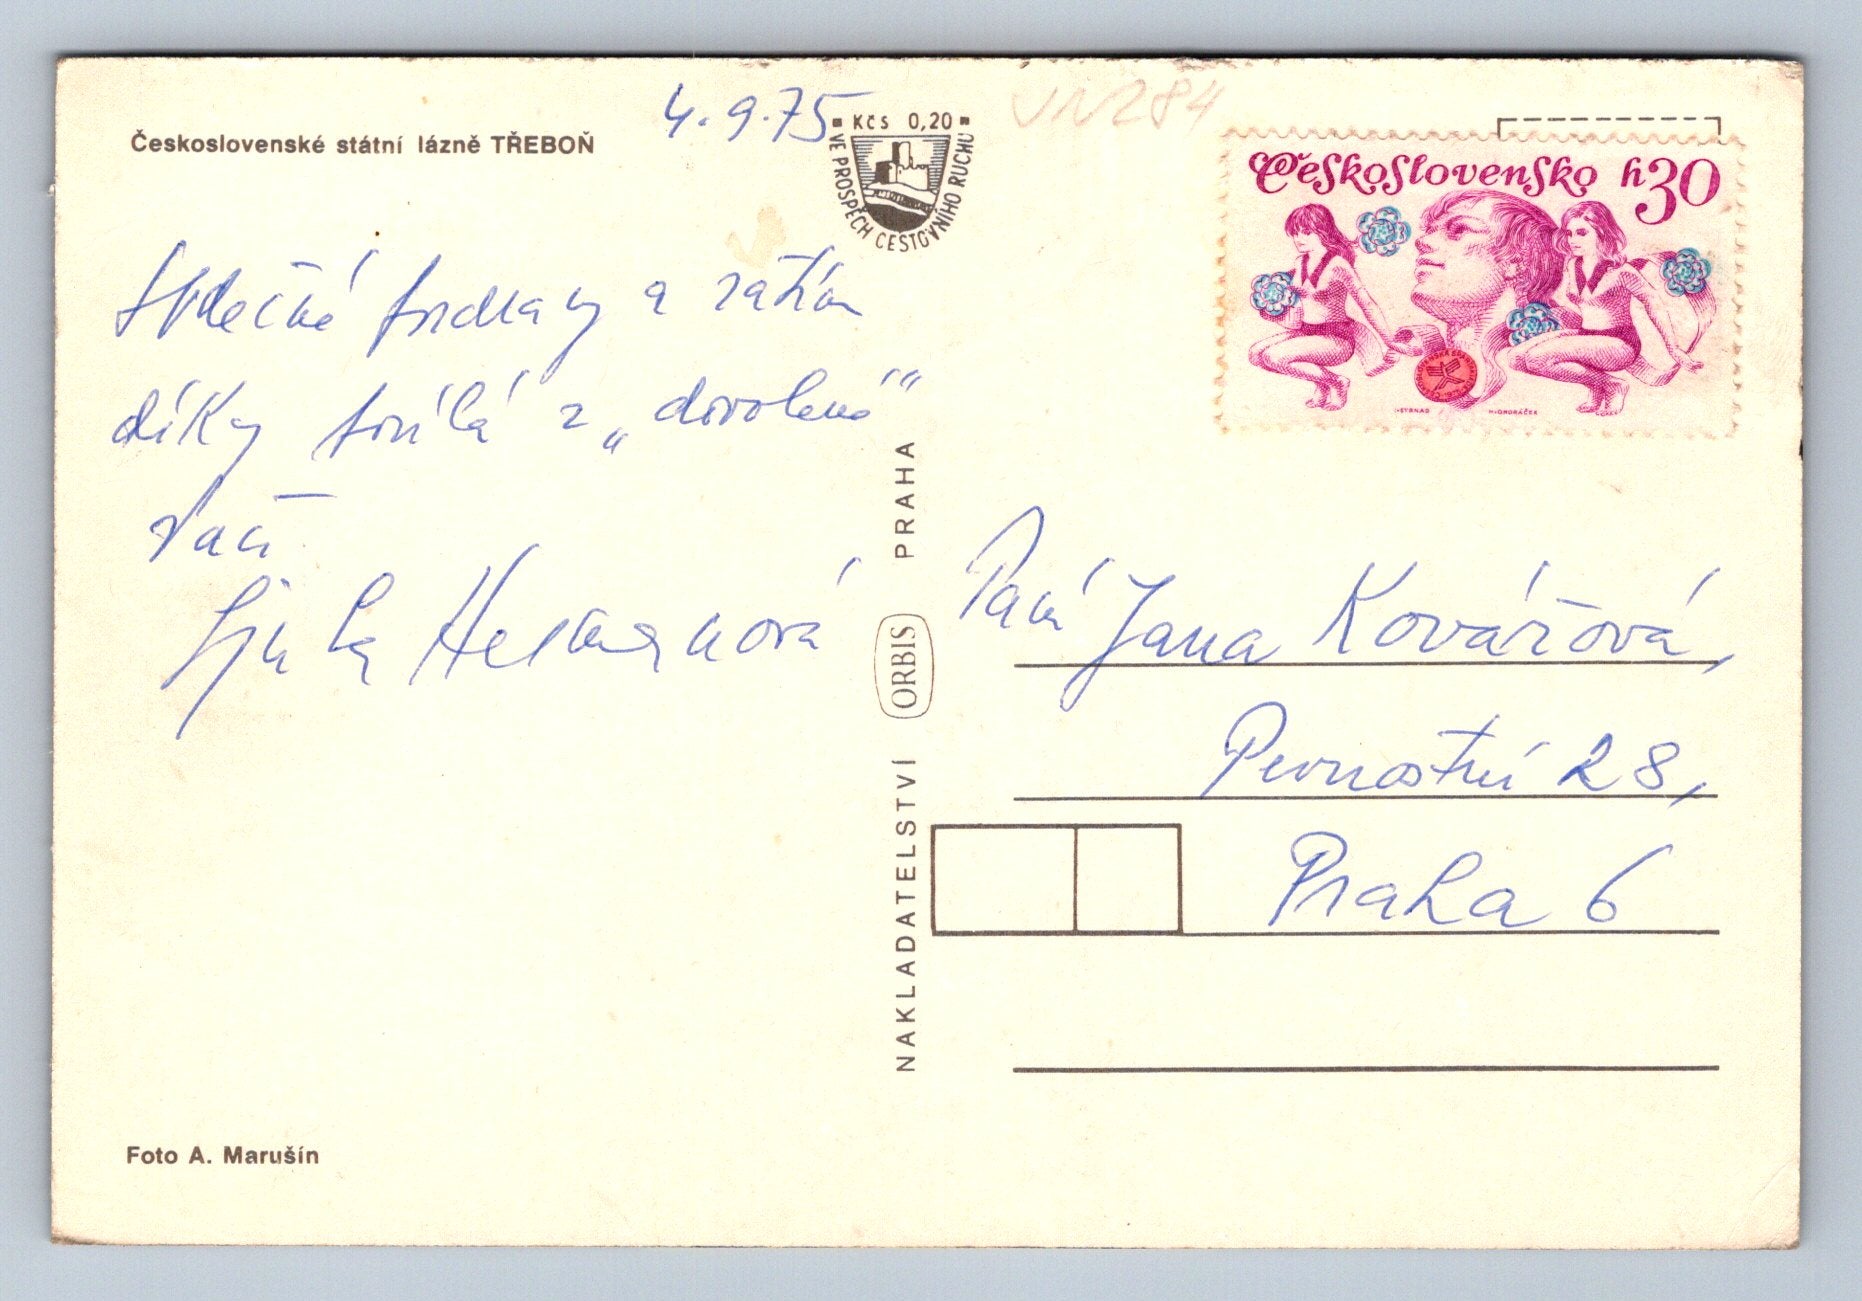 Československé státní lázně TŘEBOŇ
4.9.75
Kčs 0,20
VE PROSPĚCH CESTOVNÍHO RUCHU
Československo h 30
I. STRNAD
H. ONDRÁČEK
Srdečné pozdravy a zatím
díky posílá z „dovolené“
Vaše
Hermanová
Paní Jana Kovářová,
Pevnostní 28,
Praha 6
NAKLADATELSTVÍ ORBIS PRAHA
Foto A. Marušín